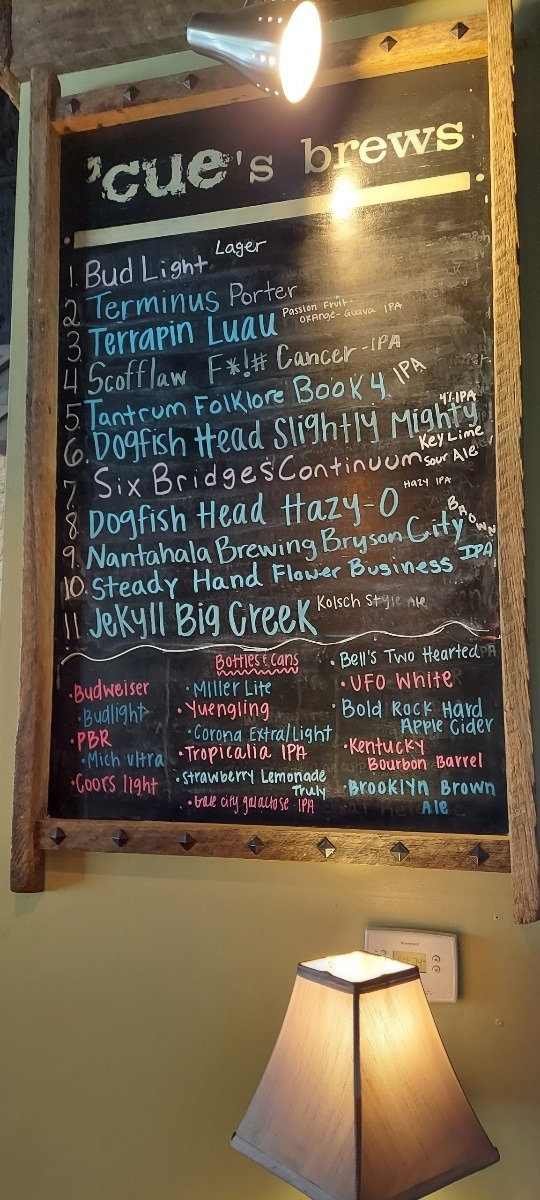 'cue's brews
1. Bud Light Lager
2. Terminus Porter
3. Terrapin Luau Passion Fruit-
Orange-Guava IPA
4 Scofflaw F*!# Cancer-IPA
5. Tantrum Folklore Book 4 IPA
6. Dogfish Head Slightly Mighty 4% IPA
7. Six Bridges Continuum Key Lime
Sour Ale
8. Dogfish Head Hazy-O HAZY IPA
9. Nantahala Brewing Bryson City BROWN
10. Steady Hand Flower Business IPA
11 Jekyll Big Creek Kolsch Style Ale
Bottles & Cans
• Budweiser
• Budlight
• PBR
• Mich ultra
• Coors light
• Miller Lite
• Yuengling
• Corona Extra/Light
• Tropicalia IPA
• Strawberry Lemonade
Truly
• gate city galactose IPA
• Bell's Two Hearted IPA
• UFO White
• Bold Rock Hard
Apple Cider
• Kentucky
Bourbon Barrel
• Brooklyn Brown
Ale
Honeywell